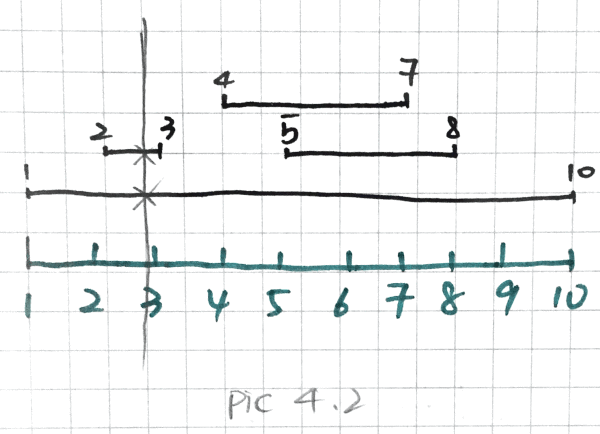 4 7
2 3 5 8
1 10
1 2 3 4 5 6 7 8 9 10
pic 4.2